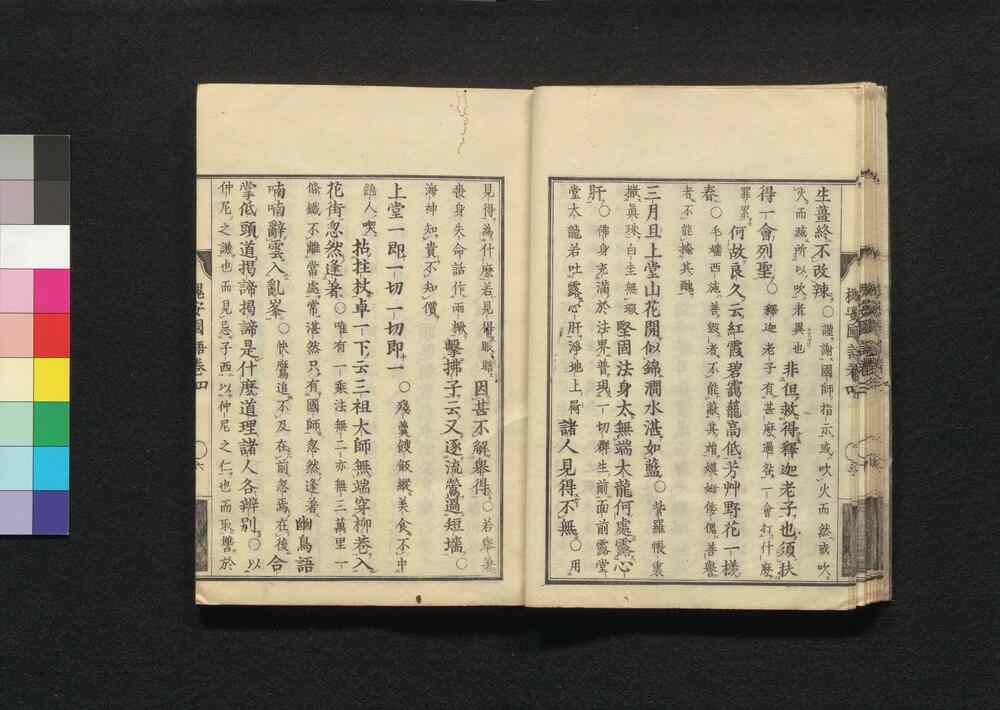 生薑終不改辣。○謹謝國師指示或吹火而然或吹
火而滅所以吹者異也 非但救得釋迦老子也須扶
得一會列聖。○釋迦老子有甚麼過咎一會打什麼
罪累。何故良久云紅霞碧靄籠高低芳艸野花一樣
春。○毛嬙西施善毀者不能蔽其雅嫫姆倭傀善譽
者不能掩其醜
三月旦上堂山花開似錦澗水湛如藍。○紫羅帳裏
撒眞珠白圭無瑕 堅固法身太無端大龍何處露心
肝。○佛身充滿於法界普現一切群生前面前露堂
堂大龍若吐露心肝淨地上屙 諸人見得不無。○用
見得爲什麼若見得眼瞎 因甚不解擧得。○若擧著
喪身失命話作兩橛 擊拂子云又逐流鶯過短墻。○
海神知貴不知價
上堂一即一切一切即一 ○殘羹餿飯縱美食不中
誰人喫 拈拄杖卓一下云三祖大師無端穿柳巷入
花街忽然逢著。○唯有一乘法無二亦無三萬里一
條鐵不離當處常湛然只有國師忽然逢著 幽鳥語
喃喃辭雲入亂峯。○快鷹追不及在前忽焉在後 合
掌低頭道揭諦揭諦是什麼道理諸人各辨別。○以
仲尼之譏也而見忌子西以仲尼之仁也而取讐於
槐安國語卷四
槐安國語卷四
六